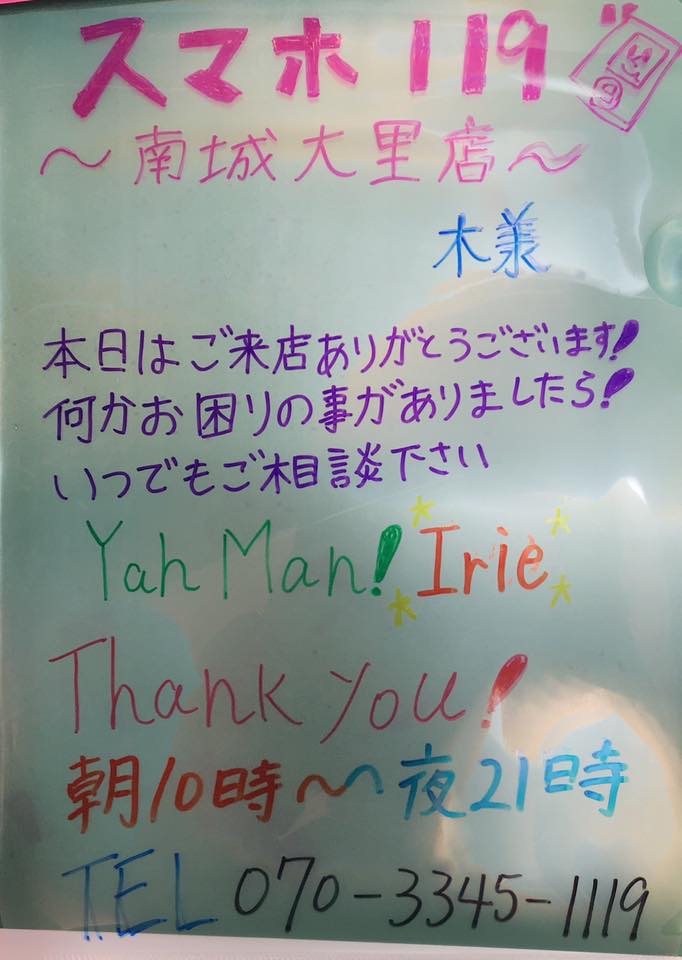 スマホ119
～南城大里店～
木義
本日はご来店ありがとうございます!
何かお困りの事がありましたら!
いつでもご相談下さい
Yah Man! Irie
Thank you!
朝10時～夜21時
TEL 070-3345-1119